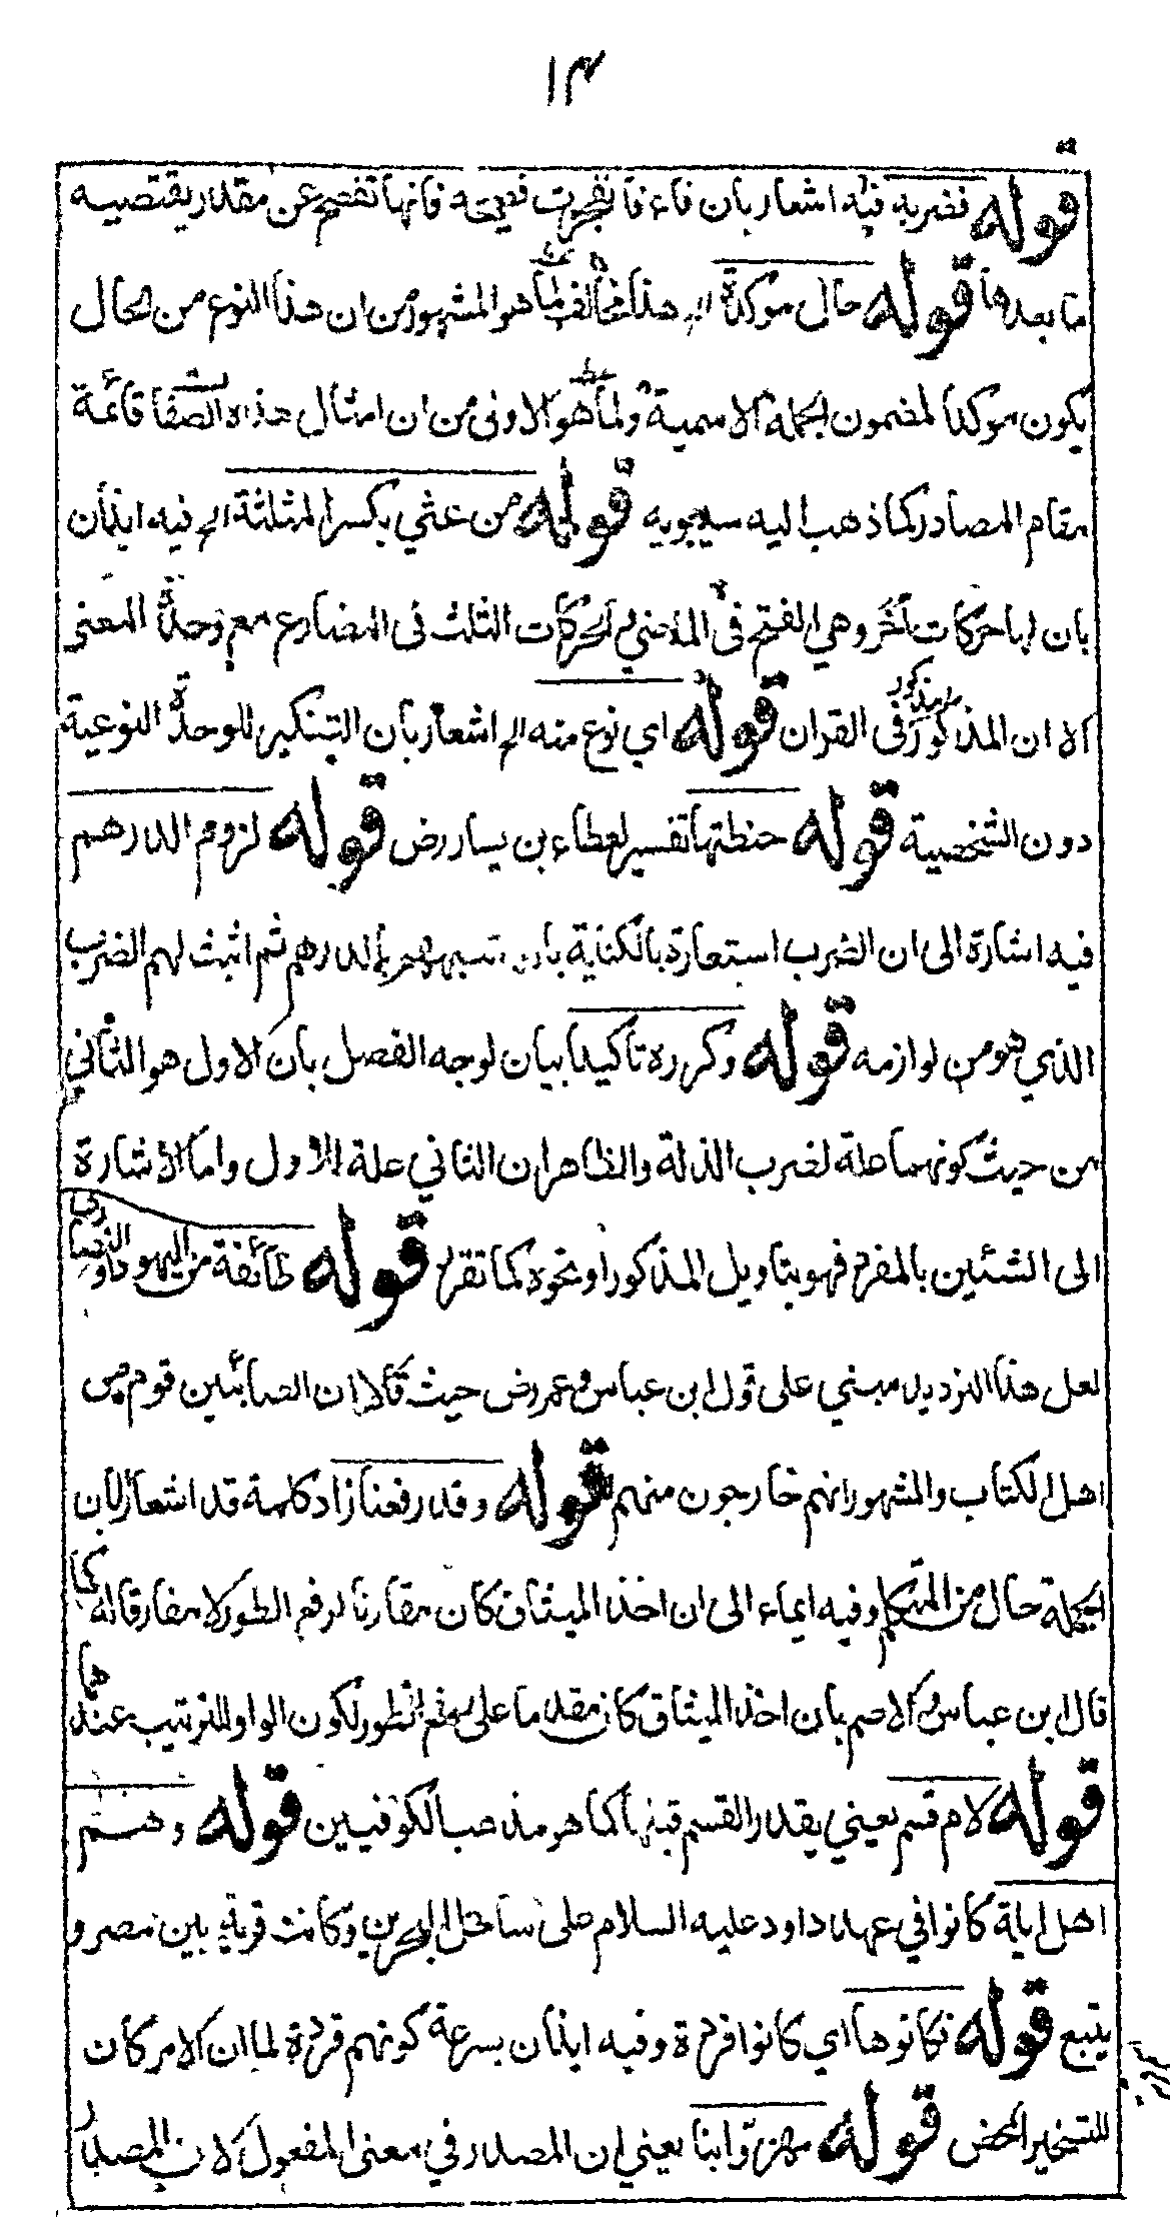 ١٣
قوله فضربه فيه اشعار بان فاء فانفجرت فصيحة فانها تفصح عن مقدر يقتضيه
ما بعدها قوله حال موكدة الخ هذا مخالف لما هو المشهور من ان هذا النوع من الحال
يكون موكدا لمضمون الجملة الاسمية ولما هو الاولى من ان امثال هذه الصفا قائمة
مقام المصادر كما ذهب اليه سيبويه قوله من عثي بكسر المثلثة الخ فيه ايذان
بان لها حركات اخر وهي الفتح في الماضي والحركات الثلث في المضارع مع وحدة المعنى
الا ان المذكور في القران قوله اي نوع منه الخ اشعار بان التنكير للوحدة النوعية
دون الشخصية قوله حنطتها تفسير لعطاء بن يسار رض قوله لزوم الدرهم
فيه اشارة الى ان الضرب استعارة بالكناية بان الدرهم ثم اثبت لهم الضرب
الذي هو من لوازمه قوله وكرره تأكيدا بيان لوجه الفصل بان الاول هو الثاني
من حيث كونهما علة لضرب الذلة والظاهر ان الثاني علة للاول واما الاشارة
الى الشئين بالمفرد فهو بتاويل المذكور او نحوه كما تقرر قوله طائفة من اليهود او النصارى
لعل هذا الترديد مبني على قول ابن عباس وعمر رض حيث قالا ان الصابئين قوم من
اهل الكتاب والمشهور انهم خارجون منهم قوله وقد رفعنا زاد كلمة قد اشعارا بان
الجملة حال من المتكلم وفيه ايماء الى ان اخذ الميثاق كان مقارنا لرفع الطور لا مفارقا له كما
قال ابن عباس والاصم بان اخذ الميثاق كان مقدما على رفع الطور لكون الواو للترتيب عندهما
قوله لام قسم يعني يقدر القسم قبلها كما هو مذهب الكوفيين قوله وهم
اهل ايلة كانوا في عهد داود عليه السلام على ساحل البحرين وكانت قرية بين مصر و
ينبع قوله فكانوها اي كانوا قردة وفيه ايذان بسرعة كونهم قردة لما ان الامر كان
للتسخير المحض قوله مهزوا بنا يعني ان المصدر في معنى المفعول لان المصدر